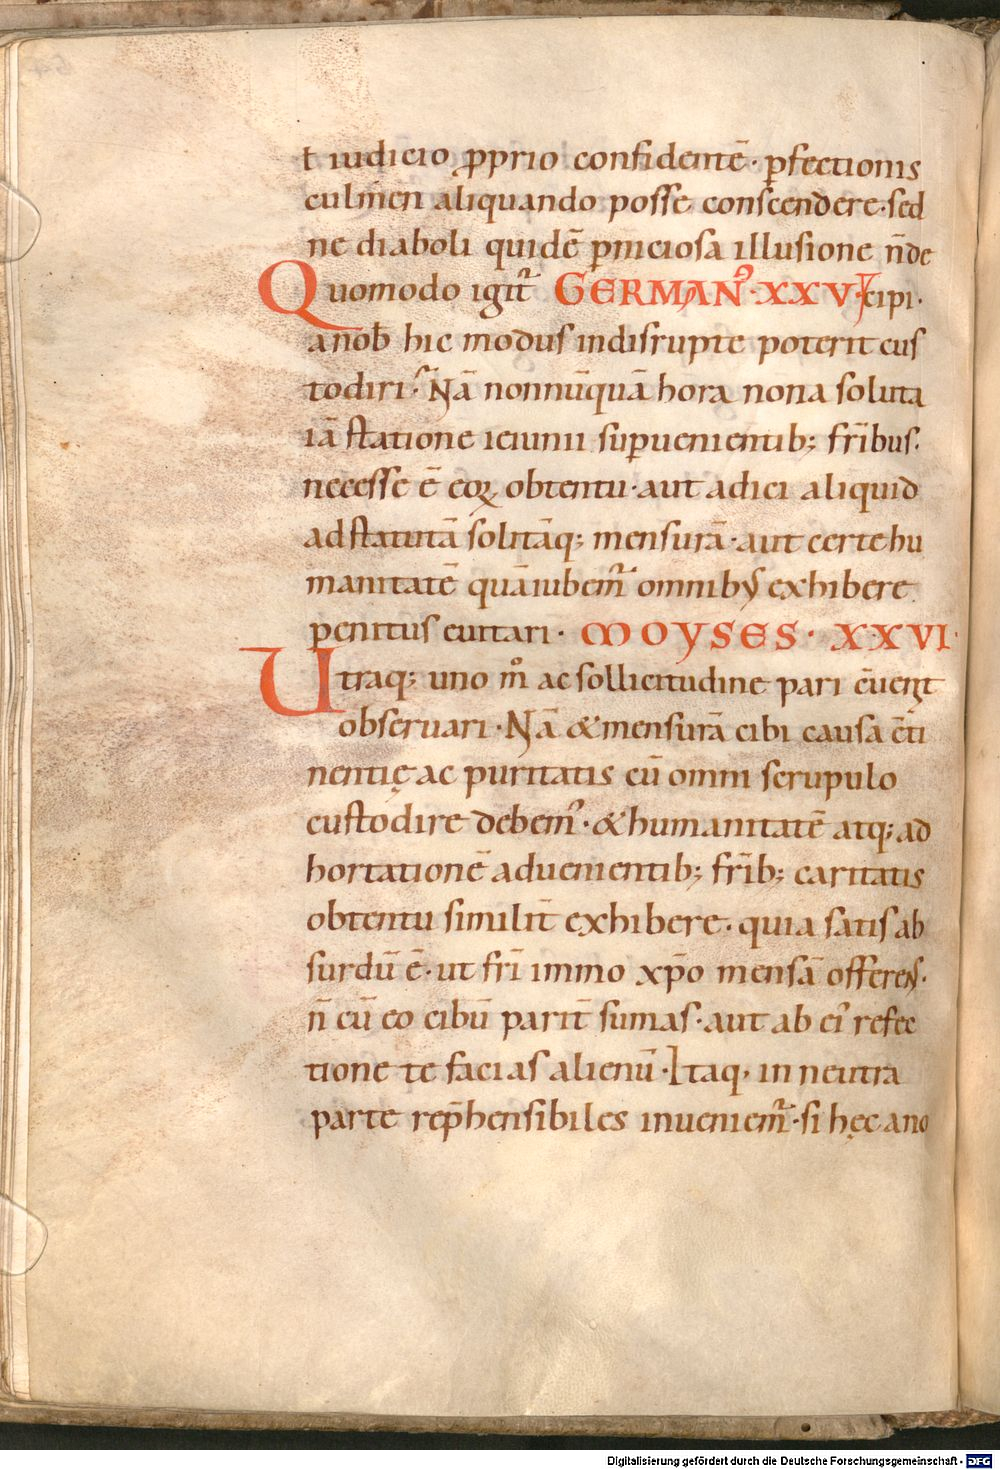 t iudicio ꝓprio confidentē · ꝑfectionis
culm̄en aliquando posse conscendere · sed
ne diaboli quidē ꝑniciosa illusione n̄de
Quomodo igit̄ GERMAN⁹ · XXV · cipi ·
a nob̄ hic modus indisrupte poterit cus
todiri · Nā nonnūquā hora nona soluta
iā statione ieiunii suꝑuenientib; fr̄ibus ·
necesse ē eoꝝ obtentu · aut adici aliquid
ad statutā solitāq; mensurā · aut certe hu
manitatē quā iubem̄ omnibꝰ exhibere
penitus euitari · MOYSES · XXVI ·
Utraq; uno m̊ ac sollicitudine pari c̄uenit
obseruari · Nā & mensurā cibi causa c̄ti
nentię ac puritatis cū omni scrupulo
custodire debem᾿ · & humanitatē atq; ad
hortationē aduenientib; fr̄ib; caritatis
obtentu similit̄ exhibere · quia satis ab
surdū ē · ut fr̄i immo xp̄o mensā offerens ·
n̄ cū eo cibū parit̄ sumas · aut ab ei᾿ refec
tione te facias alienū · Itaq, in neutra
parte rep̄hensibiles inueniem̄ · si hęc a no
Digitalisierung gefördert durch die Deutsche Forschungsgemeinschaft - DFG